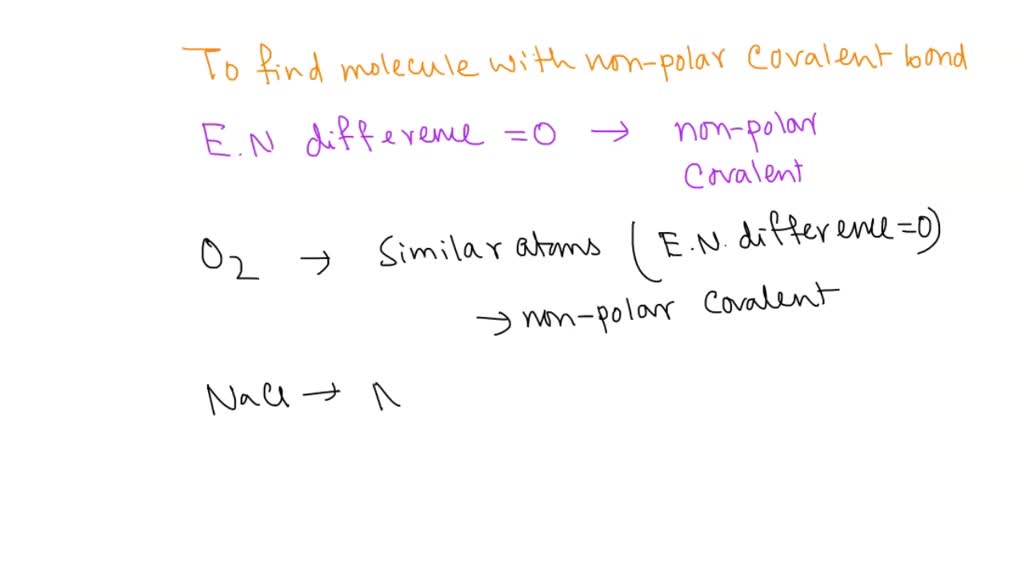 To find molecule with non-polar covalent bond
E.N difference =0 → non-polar
covalent
O2 → Similar atoms (E.N. difference=0)
→ non-polar covalent
NaCl →